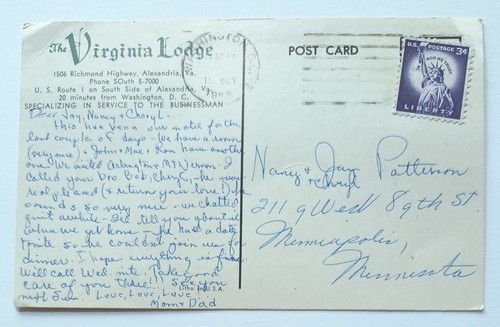 The Virginia Lodge
1506 Richmond Highway, Alexandria, Va.
Phone SOuth 8-7000
U. S. Route 1 on South Side of Alexandria
20 minutes from Washington, D. C.
SPECIALIZING IN SERVICE TO THE BUSINESSMAN
Dear Jay, Nancy & Cheryl -
This has been our motel for the
last couple of days - We have a room
(very nice) & John & Mae & Ron have another
one. We visited Arlington & Mt Vernon - I
called your Boo Bob, Cheryl - he was
real pleased (& return your love!) he
sounds so very nice - we chatted
quite awhile - I'll tell you about it
when we get home - He has a date
tonite so he couldn't join us for
dinner. I hope everything is fine.
Will call Wed. nite. Take good
care of you three!! See you
next Sun. Love, Love, Love
Mom & Dad
Litho in U.S.A.
POST CARD
WASHINGTON
OCT
U.S. POSTAGE 3¢
IN GOD WE TRUST
LIBERTY
Nancy & Jay Patterson
& Cheryl
2119 West 89th St
Minneapolis,
Minnesota